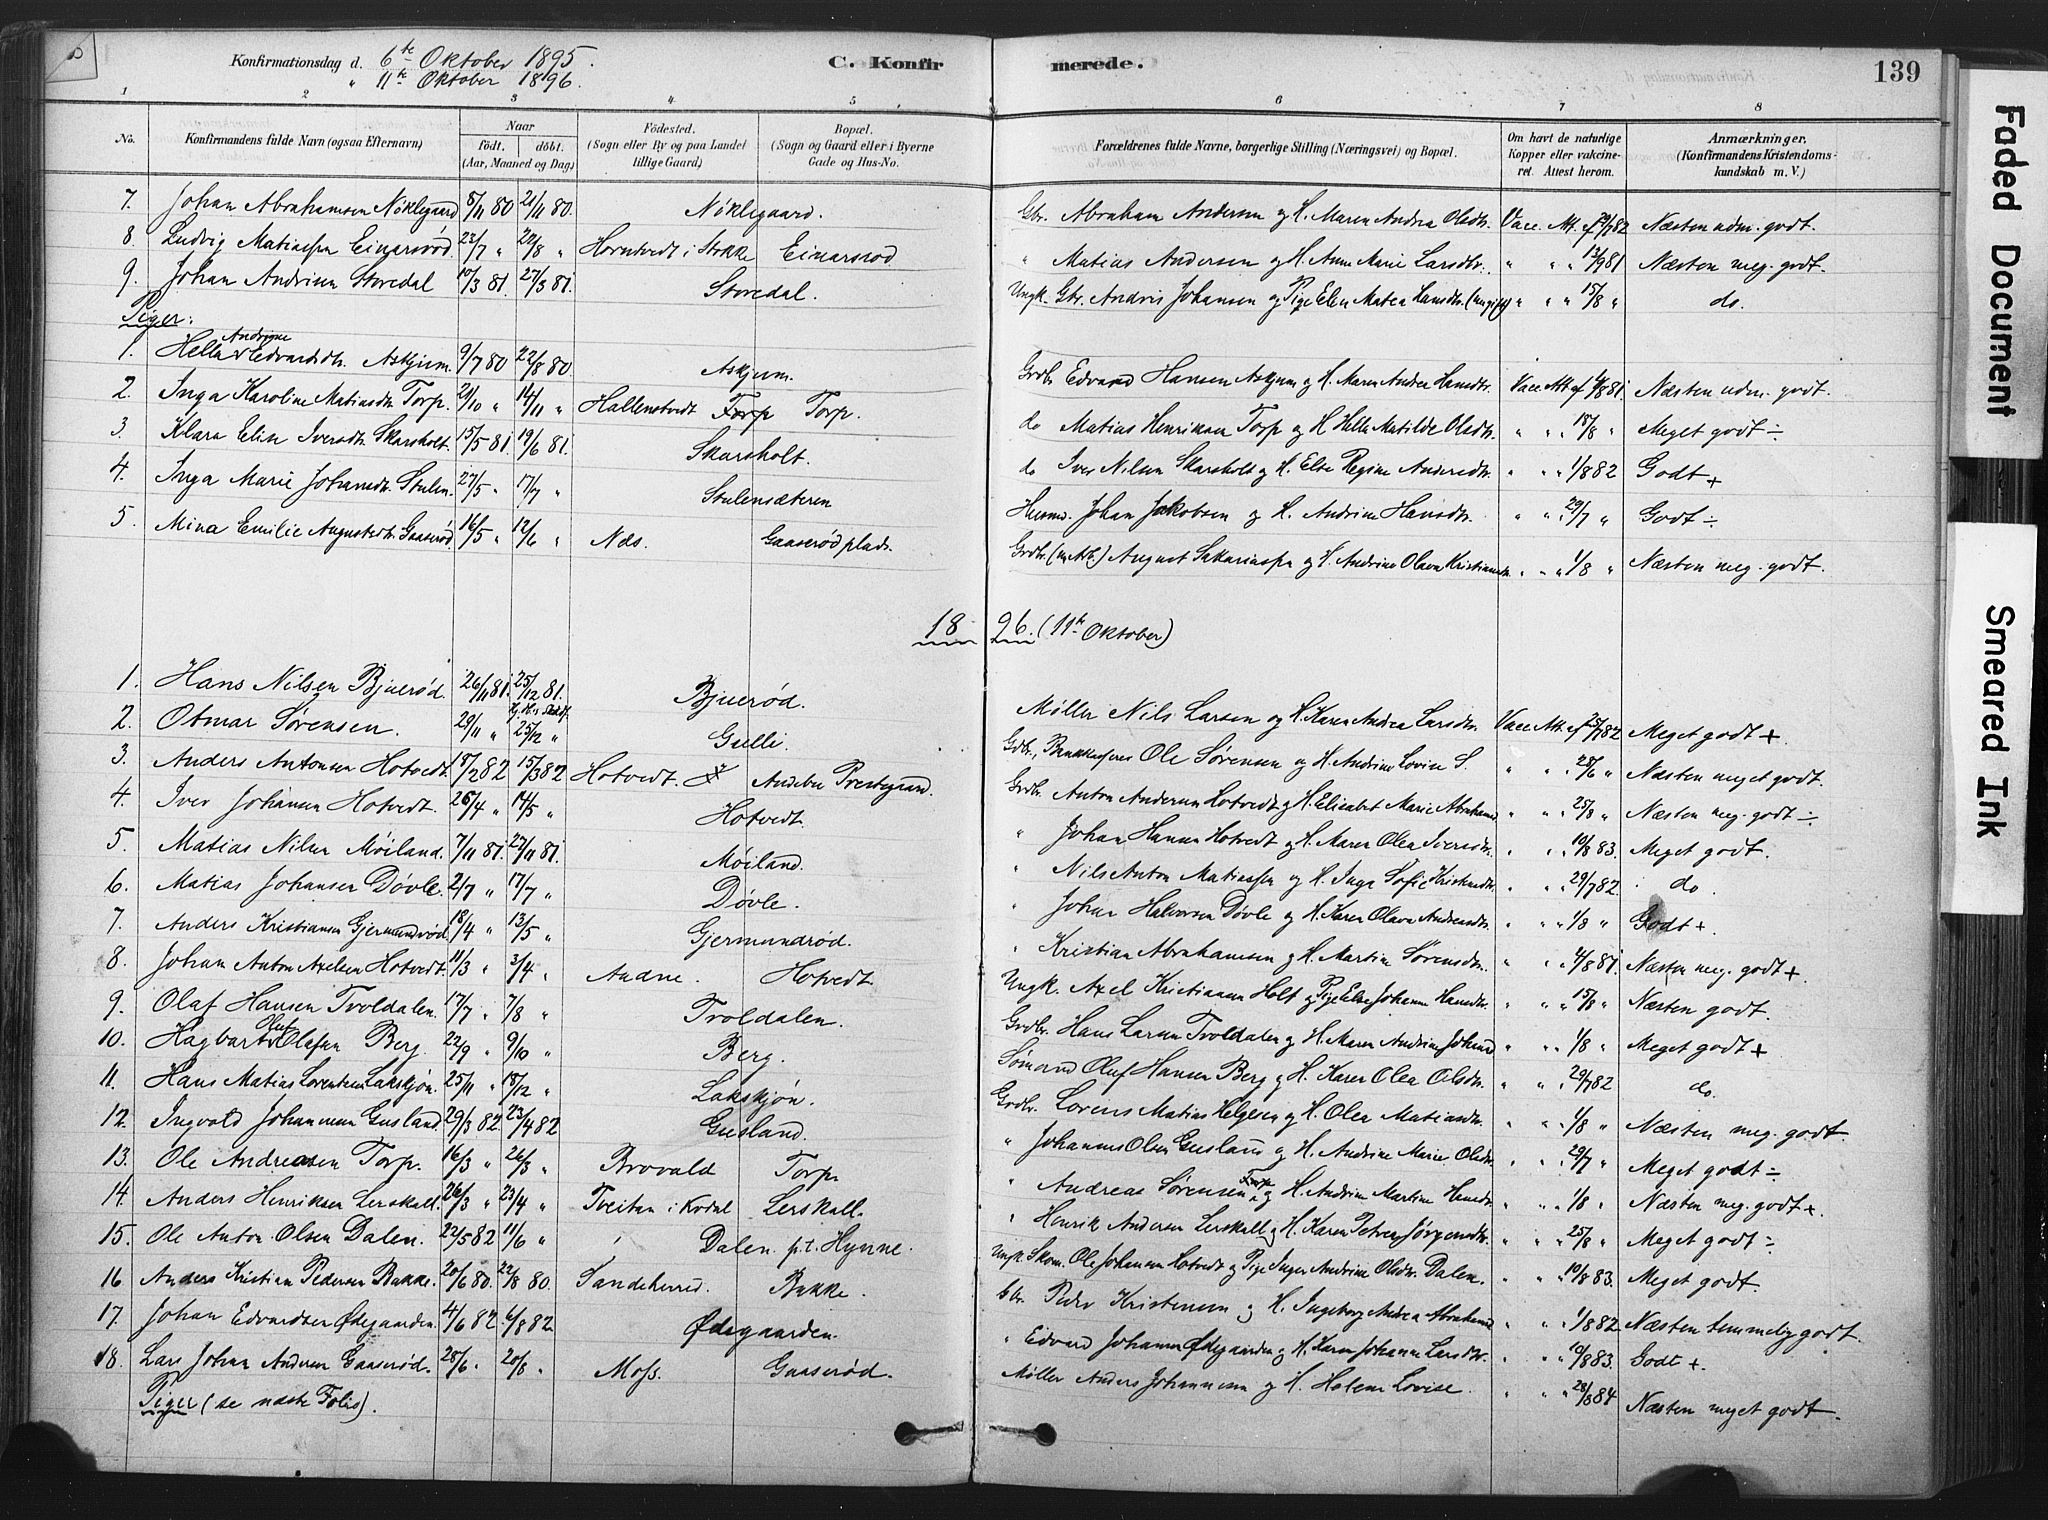 Konfirmationsdag d. 6te Oktober 1895.
" 11te Oktober 1896.
C. Konfirmerede.
139
1 2 3 4 5 6 7 8
No. Konfirmandens fulde Navn (ogsaa Efternavn) Naar födt. döbt. (Aar, Maaned og Dag) Födested. (Sogn eller By og paa Landet tillige Gaard) Bopæl. (Sogn og Gaard eller i Byerne Gade og Hus-No. Forældrenes fulde Navne, borgerlige Stilling (Næringsvei) og Bopæl. Om havt de naturlige Kopper eller vakcineret. Attest herom. Anmærkninger. (Konfirmandens Kristendomskundskab m. V.)
7. Johan Abrahamsen Nöklegaard 8/11 80 21/11 80. Nöklegaard. Gbr. Abraham Andersen og H. Maren Andrea Olsdtr. Vacc. Att. af 29/7 82 Næsten udm. godt.
8. Ludvig Matiassen Einarsröd 23/7 " 22/8 " Horntvedt i Stokke Einarsrod " Matias Andersen og H. Anne Marie Larsdtr. " " " 13/9 81 Næsten meg. godt.
9. Johan Andrisen Storedal 17/3 81. 27/3 81. Storedal. Ungk. Gbr. Andris Johansen og Pige Elen Matea Larsdtr. (ungift) " " " 15/8 " do.
Piger:
1. Hella Andrine Edvardsdtr. Askjem. 9/7 80 22/8 80. Askjem. Grdbr. Edvard Hansen Askjem og H. Maren Andrea Hansdtr. Vacc. Att. af 1/8 81. Næsten udm. godt.
2. Inga Karoline Matiasdtr. Torp. 21/10 " 14/11 " Hallenstvedt Torp Torp. do Matias Henriksen Torp og H Helle Matilde Olsdtr. " " " 18/8 " Meget godt ÷
3. Klara Elise Iversdtr. Skarsholt. 15/5 81. 19/6 81. Skarsholt. do Iver Nilsen Skarsholt og H. Else Regine Andersdtr. " " " 1/8 82 Godt +
4. Inga Marie Johansdtr. Stulen. 27/5 " 17/7 " Stulensæteren Husmd. Johan Jakobsen og H. Andrine Hansdtr. " " " 29/7 " Godt ÷
5. Mina Emilie Augustsdtr. Gaaseröd. 16/5 " 12/6 " Næs. Gaaserödplads. Grdbr. August Sakariassen og H. Andrine Olava Kristiansdtr. " " " 1/8 " Næsten meg. godt.
1896. (11te Oktober)
1. Hans Nilsen Bjueröd. 26/11 81. 25/12 81. Bjueröd. Møller Nils Larsen og H. Karen Andrea Larsdtr. Vacc. Att. af 25/7 82 Meget godt +
2. Otmar Sørensen. 29/11 " 25/12 " Gulli. Gdbr., Bankkasserer Ole Sörensen og H. Andrine Lovise S. " " " 28/6 " Næsten meget godt.
3. Anders Antonsen Hotvedt. 18/2 82 15/3 82 Hotvedt. Andebu Prestegaard. Grdbr. Anton Andersen Hotvedt og H. Elisabet Marie Abrahamsd. " " " 25/8 " Næsten meg. godt ÷
4. Iver Johansen Hotvedt. 26/4 " 14/5 " Hotvedt. " Johan Hansen Hotvedt og H. Maren Olea Iversdtr. " " " 10/8 83. Meget godt.
5. Matias Nilsen Møiland. 7/11 81. 27/11 81. Møiland. " Nils Anton Matiassen og H. Inga Sofie Kristensdtr. " " " 29/7 82. do.
6. Matias Johansen Døvle. 2/7 " 17/7 " Døvle. " Johan Halvorsen Døvle og H. Karen Olava Andreasdtr. " " " 1/8 " Godt +.
7. Anders Kristiansen Gjermundröd. 18/4 " 13/5 " Gjermundröd. " Kristian Abrahamsen og H. Martine Sørensdtr. " " " 4/8 81. Næsten meg. godt +
8. Johan Anton Axelsen Hotvedt. 11/3 " 3/4 " Andebu. Hotvedt. Ungk. Axel Kristiansen Holt og Pige Else Johanne Hansdtr. " " " 15/8 " Næsten godt.
9. Olaf Hansen Troldalen. 17/7 " 7/8 " Troldalen. Grdbr. Hans Larsen Troldalen og H. Maren Andrine Johansd. " " " 1/8 " Meget godt +
10. Hagbart Oluf Olafsen Berg. 22/9 " 9/10 " Berg. Sømand Oluf Hansen Berg og H. Karen Olea Olsdtr. " " " 29/7 82 do.
11. Hans Matias Lorentsen Lakskjön. 25/11 " 18/12 " Lakskjön. Grdbr. Lorens Matias Helgesen og H. Olea Matiasdtr. " " " 1/8 " Næsten meg. godt.
12. Ingvald Johannesen Gusland. 29/3 82. 23/4 82 Gusland. " Johannes Olsen Gusland og H. Andrine Marie Olsdtr. " " " 29/7 " Meget godt ÷
13. Ole Andreasen Torp. 16/3 " 26/3 " Brovald Torp " Andreas Sørensen Torp og H. Andrine Martine Hansdtr. " " " 1/8 " Næsten meg. godt +.
14. Anders Henriksen Lerskall. 26/3 " 23/4 " Tveitan i Kodal Lerskall. " Henrik Andersen Lerskall og H. Karen Petrea Jörgensdtr. " " " 25/8 " Meget godt ÷
15. Ole Anton Olsen Dalen. 22/5 82 11/6 " Dalen p.t. Hynne. Ungk. Skom. Ole Johansen Hotvedt og Pige Inger Andrine Olsdtr. Dalen. " " " 10/8 83. Meget godt.
16 Anders Kristian Pedersen Bakke. 20/6 80. 22/8 80. Sandeherred. Bakke. Gbr. Peder Kristensen og H. Ingeborg Andrea Abrahamsd. " " " 1/8 82 Næsten temmelig godt.
17. Johan Edvardsen Ødegaarden. 4/6 82 6/8 82. Ødegaarden. " Edvard Johansen Ødegaarden og H. Karen Johanne Larsdtr. " " " 10/8 83. Godt +.
18. Lars Johan Andersen Gaaseröd. 28/6 " 20/8 " Moss. Gaaseröd. Møller Anders Johannesen og H. Helene Lovise. " " " 28/8 84 Næsten meget godt.
Piger (se næste Folio).
Faded Document
Smeared Ink